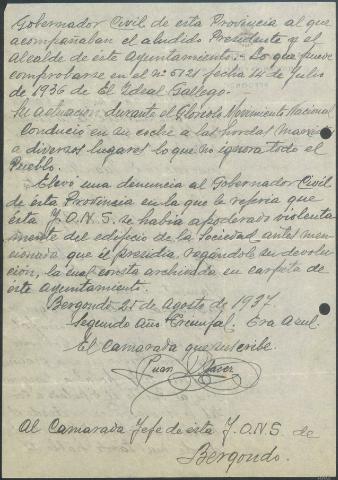 Gobernador Civil de esta Provincia al que
acompañaban el aludido Presidente y el
Alcalde de este Ayuntamiento.- Lo que puede
comprobarse en el nº 6121 fecha 14 de Julio
de 1936 de El Ideal Gallego.
Su actuación durante el Glorioso Movimiento Nacional
Condució en su coche a las hordas
a diversos lugares lo que no ignora todo el
Pueblo.
Elevó una denuncia al Gobernador Civil
de esta Provincia en la que le refería que
esta J.O.N.S. se había apoderado violenta
mente del edificio de la Sociedad antes men
cionada que él presidía, rogándole su devolu
ción, la cual consta archivada en carpeta de
este Ayuntamiento.
Bergondo 25 de Agosto de 1937.
Segundo Año Triunfal. Era Azul.
El Camarada que suscribe.
Juan
Al Camarada Jefe de esta J.O.N.S. de
Bergondo.